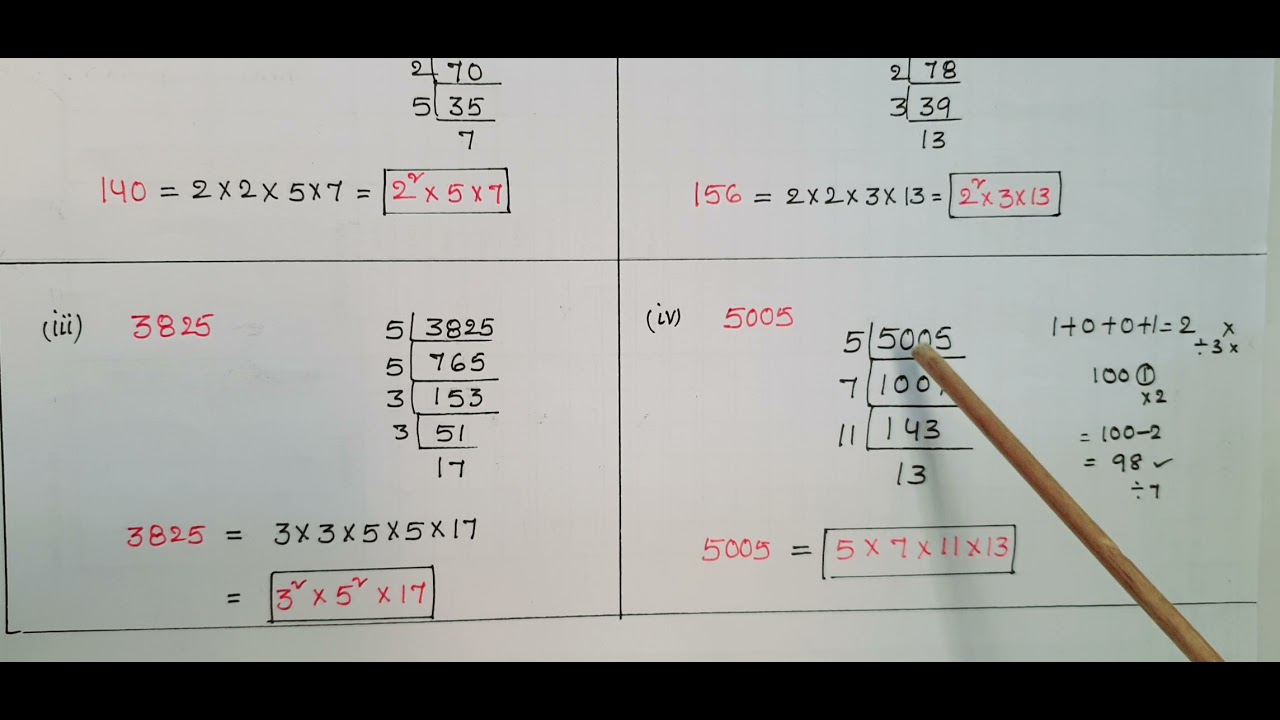 2 70
5 35
7
140 = 2 × 2 × 5 × 7 = 2² × 5 × 7
2 78
3 39
13
156 = 2 × 2 × 3 × 13 = 2² × 3 × 13
(iii) 3825
5 3825
5 765
3 153
3 51
17
3825 = 3 × 3 × 5 × 5 × 17
= 3² × 5² × 17
(iv) 5005
5 5005
7 100
11 143
13
1+0+0+1=2 ×
÷3 ×
100 ①
×2
= 100-2
= 98 ✓
÷7
5005 = 5 × 7 × 11 × 13